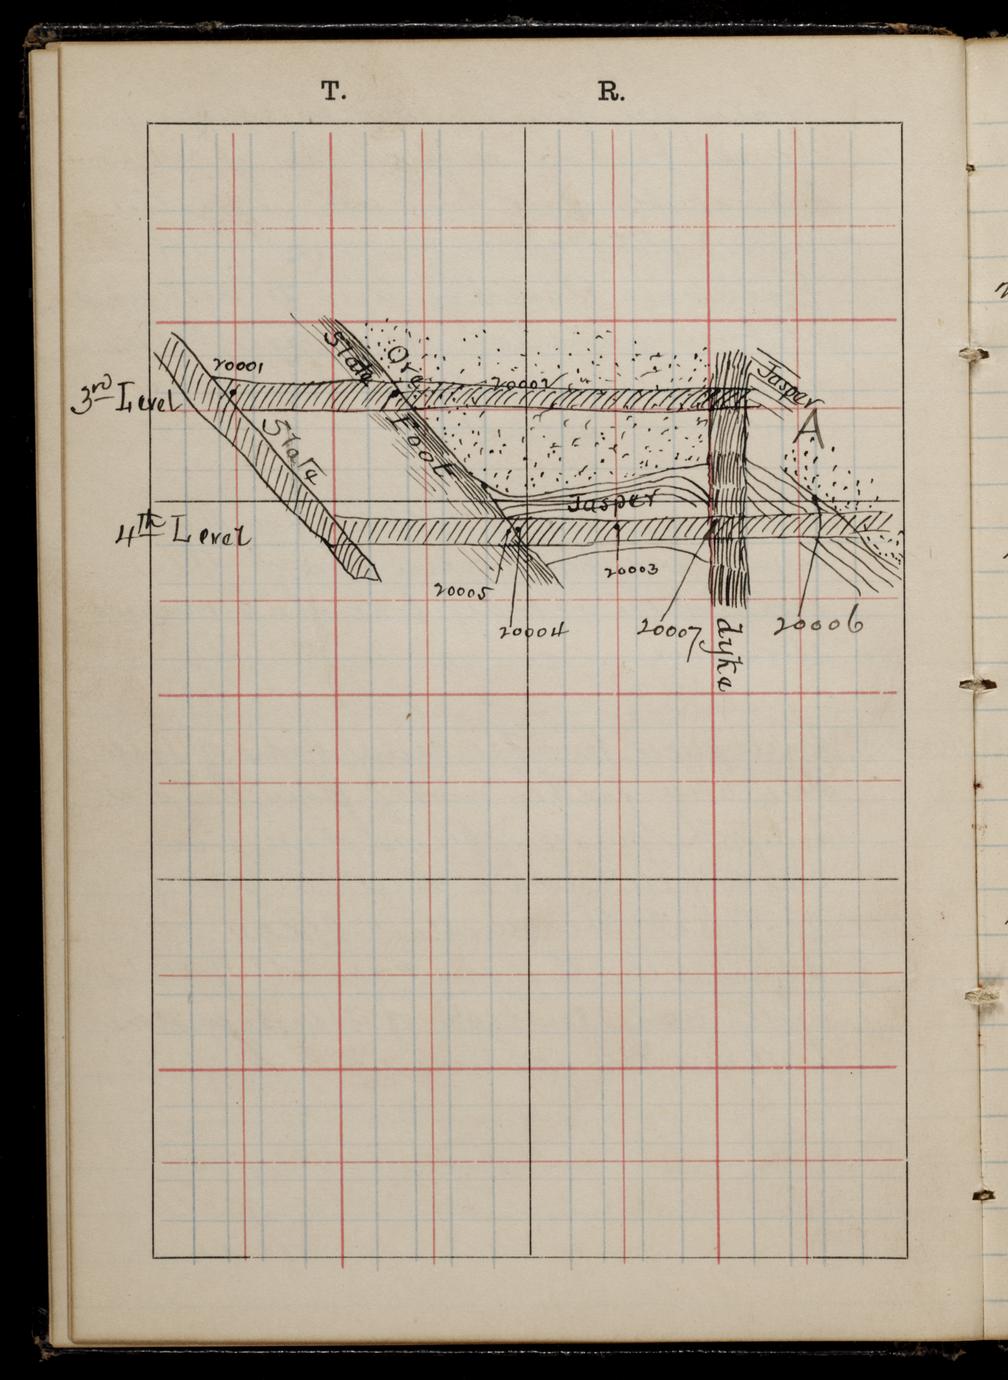 T. R.
20001
Slate
Ore
20002
Jasper
3rd Level
A
Slate
Foot
Jasper
4th Level
20005
20003
20004
20007
dyke
20006